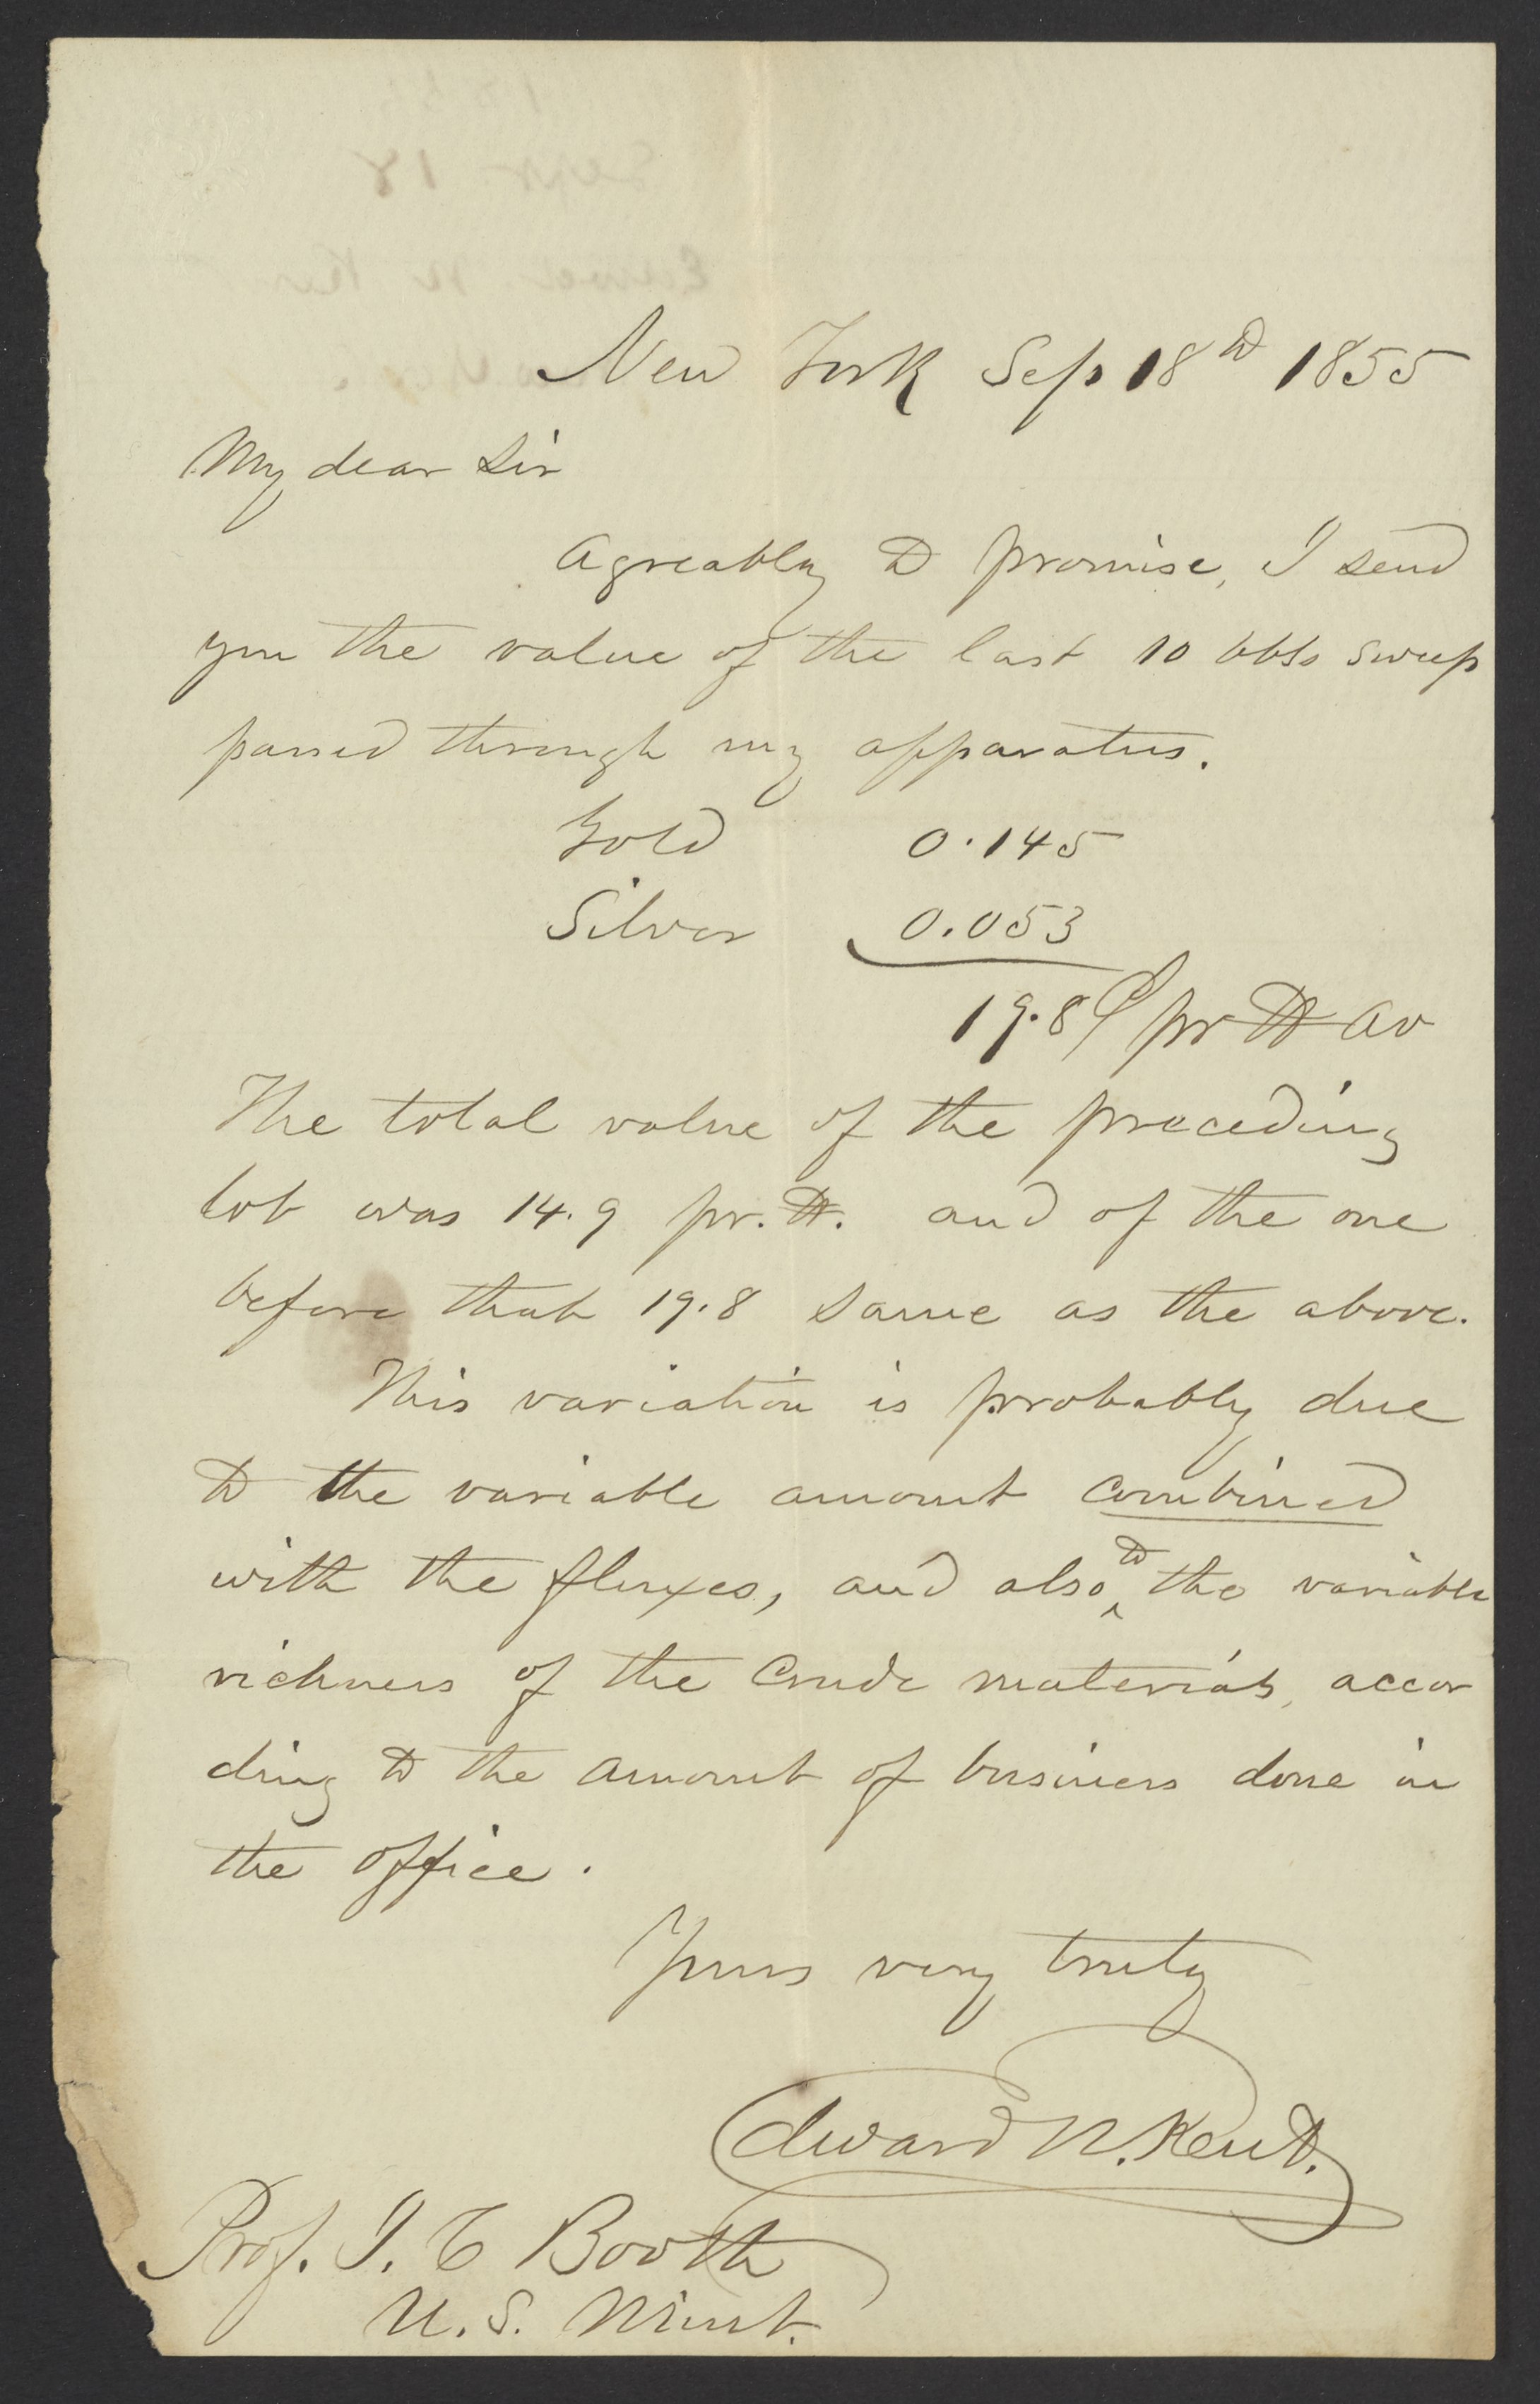 New York Sep 18th 1855
My dear Sir
Agreably to promise, I send
you the value of the last 10 bbls sweep
passed through my apparatus.
Gold 0.145
Silver 0.053
19.8 ¢ pr ℔ av
The total value of the preceding
lot was 14.9 pr. ℔. and of the one
before that 19.8 same as the above.
This variation is probably due
to the variable amount combined
with the fluxes, and also to the variable
richness of the crude materials, accor
ding to the amount of business done in
the office.
Yours very truly
Edward N. Kent.
Prof. J. C Booth
U.S. Mint.